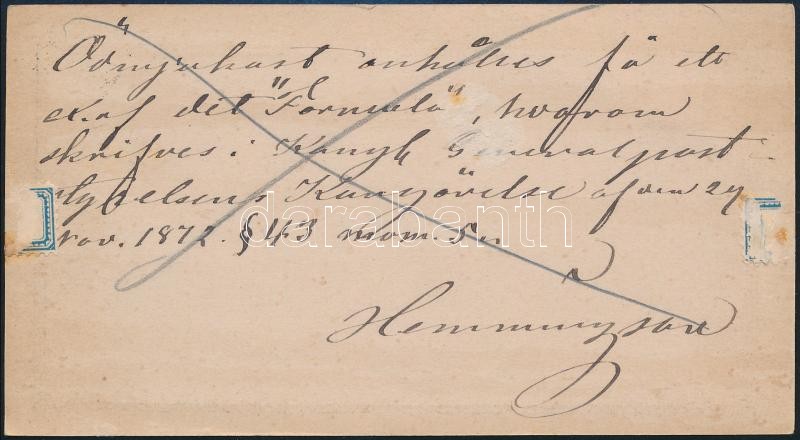 Ödmjukast anhålles få ett
ex. af det "Formulär", hvarom
skrifves i Kongl. Generalpost
styrelsens Kungörelse af den 29
nov. 1872. § 43 mom. 5.
Hemmingson
darabanth